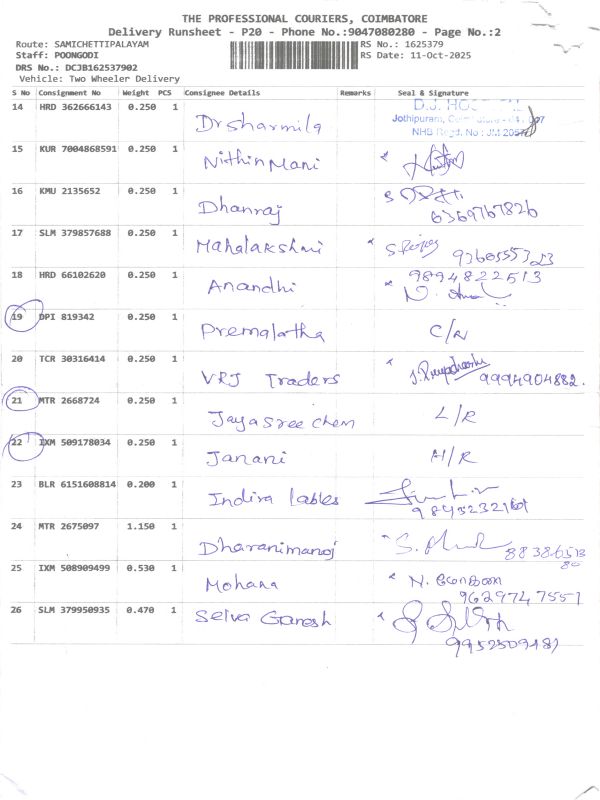 THE PROFESSIONAL COURIERS, COIMBATORE
Delivery Runsheet - P20 - Phone No.:9047080280 - Page No.:2
Route: SAMICHETTIPALAYAM RS No.: 1625379
Staff: POONGODI RS Date: 11-Oct-2025
DRS No.: DCJB162537902
Vehicle: Two Wheeler Delivery
S No Consignment No Weight PCS Consignee Details Remarks Seal & Signature
14 HRD 362666143 0.250 1 Dr sharmila
Jothipuram,
15 KUR 7004868591 0.250 1 Nithin Mani
16 KMU 2135652 0.250 1 Dhanraj
6369767826
17 SLM 379857688 0.250 1 Mahalakshmi
18 HRD 66102620 0.250 1 Anandhi 9894822513
19 DPI 819342 0.250 1 Premalatha C/N
20 TCR 30316414 0.250 1 VRJ Traders 9994904882.
21 MTR 2668724 0.250 1 Jayasree chem L/R
22 IXM 509178034 0.250 1 Janani H/R
23 BLR 6151608814 0.200 1 Indira lables
24 MTR 2675097 1.150 1 Dharanimanoj
25 IXM 508909499 0.530 1 Mohana
9629747551
26 SLM 379950935 0.470 1 Selva Ganesh